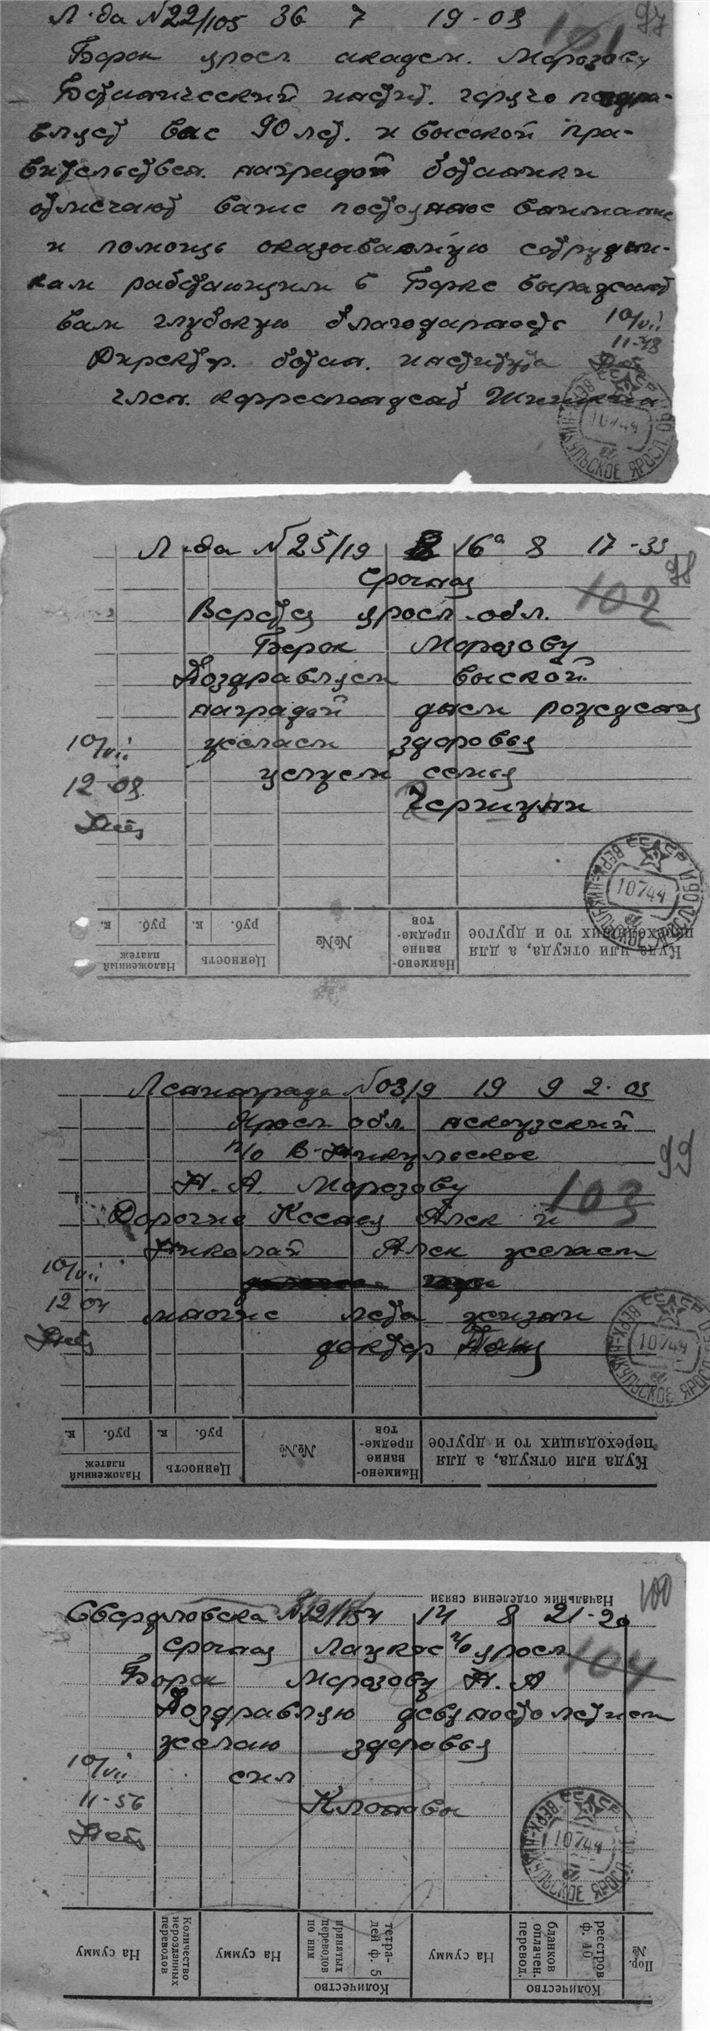 Л-да N22/105 36 7 19-03
101 97
Борок яросл академ. Морозову
Ботанический инстит. горячо поздра-
вляет вас 90 лет. и высокой пра-
вительствен. наградой ботаники
отмечают ваше постоянное внимание
и помощь оказываемую сотрудни-
кам работающим в Борке выражают
вам глубокую благодарность 10/VII
11-48
Директор. ботан. института
член. корреспондент Шишкин
СССР
10744
ВЕРХ-НИКУЛЬСКОЕ ЯРОСЛ ОБЛ
Л-да N25/19 16а 8 17-33
98
срочная 102
Веретея яросл-обл.
Борок Морозову
Поздравляем выской
наградой днем рождения
10/VII желаем здоровья
12-09 целуем семья
СССР
10744
ВЕРХ-НИКУЛЬСКОЕ ЯРОСЛ ОБЛ
Куда или откуда, а для переходящих то и другое
Наимено-вание предме-тов
№№
Ценность
руб. к.
Наложенный платеж
руб. к.
Ленинграда N03/9 19 9 2-03
Яросл обл.
п/о В-Никульское 99
Н. А. Морозову 103
Дорогие Ксения Алек и
Николай Алек желаем
10/VII
12 04 многие лета жизни
доктор
СССР
10744
ВЕРХ-НИКУЛЬСКОЕ ЯРОСЛ
Куда или откуда, а для переходящих то и другое
Наимено-вание предме-тов
№№
Ценность
руб. к.
Наложенный платеж
руб. к.
Начальник отделения связи
100
Свердловска N12/154 14 8 21-20
срочная п/о яросл 104
Борок Морозову Н. А
Поздравляю девяностолетием
желаю здоровья
10/VII сил
11-56
СССР
10744
ВЕРХ-НИКУЛЬСКОЕ ЯРОСЛ
Пор. №
Количество
реестров ф. 10
бланков оплачен. перевод.
На сумму
Количество
тетра-дей ф. 5
принятых переводов по ним
На сумму
Количество нерозданных переводов
На сумму